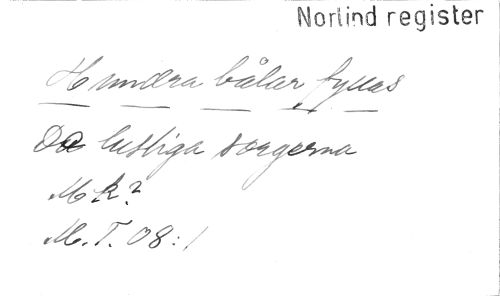 Norlind register
Hundra bålar fyllas
De lustiga sorgerna
Mk?
M.T. 08:1